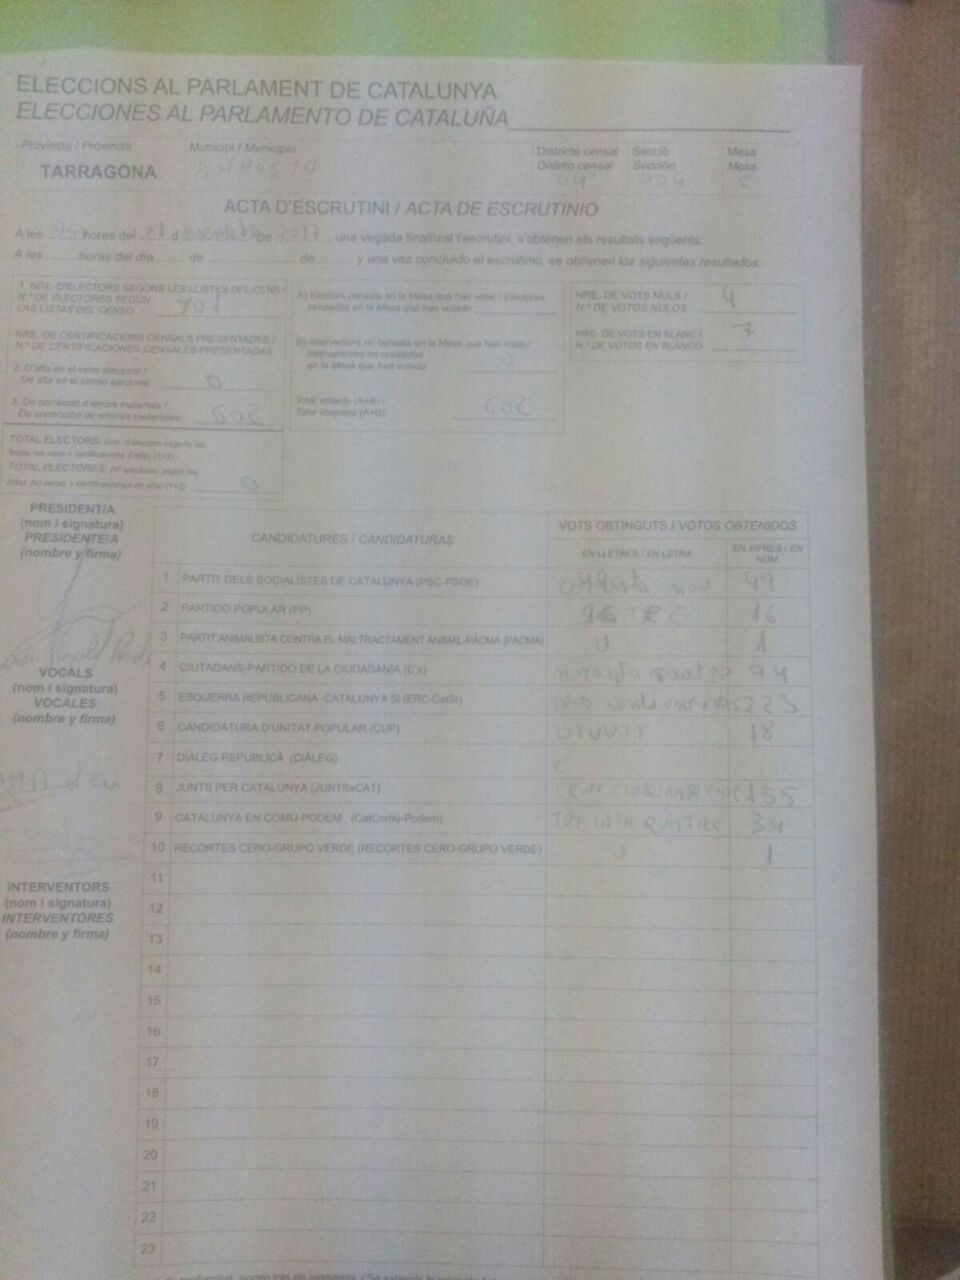 ELECCIONS AL PARLAMENT DE CATALUNYA
ELECCIONES AL PARLAMENTO DE CATALUÑA
Província / Provincia Municipi / Municipio Districte censal Secció Mesa
Distrito censal Sección Mesa
TARRAGONA AMPOSTA 04 004 C
ACTA D'ESCRUTINI / ACTA DE ESCRUTINIO
A les hores del 21 d de 2017, una vegada finalitzat l'escrutini, s'obtenen els resultats següents:
A las horas del día de de , y una vez concluido el escrutinio, se obtienen los siguientes resultados:
1. NRE. D'ELECTORS SEGONS LES LLISTES DEL CENS /
N.º DE ELECTORES SEGÚN
LAS LISTAS DEL CENSO 701
NRE. DE CERTIFICACIONS CENSALS PRESENTADES /
N.º DE CERTIFICACIONES CENSALES PRESENTADAS
2. D'alta en el cens electoral /
De alta en el censo electoral: 0
3. De correcció d'errors materials /
De corrección de errores materiales: 602
TOTAL ELECTORS: (nre. d'electors segons les
llistes del cens + certificacions d'alta) (1+2) /
TOTAL ELECTORES: (nº electores según las
listas del censo + certificaciones de alta) (1+2) 0
A) Electors censats en la Mesa que han votat / Electores
censados en la Mesa que han votado
B) Interventors no censats en la Mesa que han votat /
Interventores no censados
en la Mesa que han votado 0
Total votants (A+B) /
Total votantes (A+B) 602
NRE. DE VOTS NULS /
N.º DE VOTOS NULOS 4
NRE. DE VOTS EN BLANC /
N.º DE VOTOS EN BLANCO 7
PRESIDENT/A
(nom i signatura)
PRESIDENTE/A
(nombre y firma)
VOCALS
(nom i signatura)
VOCALES
(nombre y firma)
INTERVENTORS
(nom i signatura)
INTERVENTORES
(nombre y firma)
CANDIDATURES / CANDIDATURAS VOTS OBTINGUTS / VOTOS OBTENIDOS
EN LLETRES / EN LETRA EN XIFRES / EN NÚM.
1 PARTIT DELS SOCIALISTES DE CATALUNYA (PSC-PSOE) nou 49
2 PARTIDO POPULAR (PP) SETZE 16
3 PARTIT ANIMALISTA CONTRA EL MALTRACTAMENT ANIMAL-PACMA (PACMA) U 1
4 CIUTADANS-PARTIDO DE LA CIUDADANÍA (C's) noranta quatre 94
5 ESQUERRA REPUBLICANA -CATALUNYA SÍ (ERC-CatSí) dos cents vint-i-tres 223
6 CANDIDATURA D'UNITAT POPULAR (CUP) DIVUIT 18
7 DIÀLEG REPUBLICÀ (DIÀLEG)
8 JUNTS PER CATALUNYA (JUNTSxCAT) CENT CINQUANTA CINC 155
9 CATALUNYA EN COMÚ-PODEM (CatComú-Podem) TREINTA QUATRE 34
10 RECORTES CERO-GRUPO VERDE (RECORTES CERO-GRUPO VERDE) U 1
11
12
13
14
15
16
17
18
19
20
21
22
23